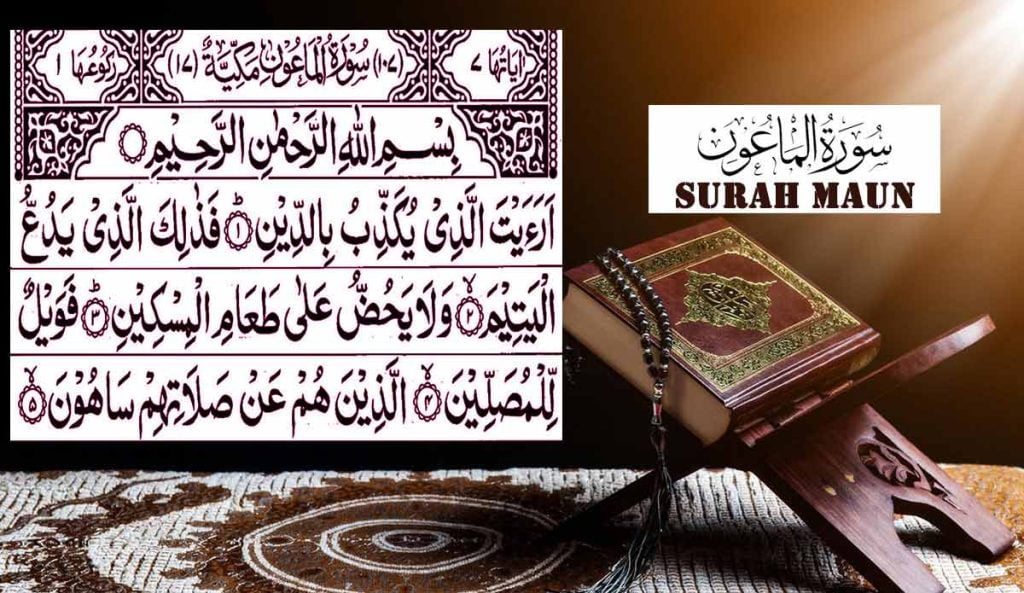 اٰيَاتُهَا ٧ (١٠٧) سُوْرَةُ الْمَاعُوْنِ مَكِّيَّةٌ (١٧) رُكُوْعُهَا ١
بِسْمِ اللّٰهِ الرَّحْمٰنِ الرَّحِيْمِ
اَرَءَيْتَ الَّذِىْ يُكَذِّبُ بِالدِّيْنِ ١ؕ فَذٰلِكَ الَّذِىْ يَدُعُّ
الْيَتِيْمَ ٢ۙ وَلَا يَحُضُّ عَلٰى طَعَامِ الْمِسْكِيْنِ ٣ؕ فَوَيْلٌ
لِّلْمُصَلِّيْنَ ٤ۙ الَّذِيْنَ هُمْ عَنْ صَلَاتِهِمْ سَاهُوْنَ ٥ۙ
سُورَةُ الْمَاعُون
SURAH MAUN